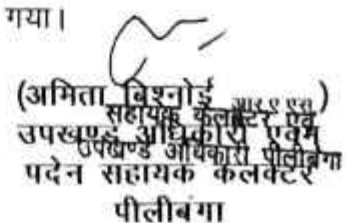 गया।
(अमिता बिश्नोई आर ए एस)
सहायक कलक्टर एवं
उपखण्ड अधिकारी एवम्
उपखण्ड अधिकारी पीलीबंगा
पदेन सहायक कलक्टर
पीलीबंगा